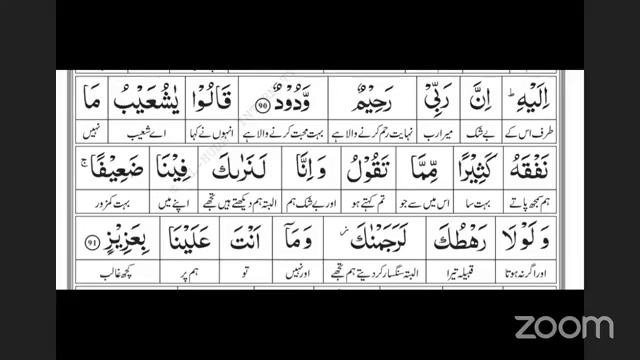 اِلَيْهِ ؕ اِنَّ رَبِّيْ رَحِيْمٌ وَّدُوْدٌ ۹۰ قَالُوْا يٰشُعَيْبُ مَا
طرف اس کے بے شک میرا رب نہایت رحم کرنے والا ہے بہت محبت کرنے والا ہے انہوں نے کہا اے شعیب نہیں
نَفْقَهُ كَثِيْرًا مِّمَّا تَقُوْلُ وَاِنَّا لَنَرٰىكَ فِيْنَا ضَعِيْفًا ۚ
ہم سمجھ پاتے بہت سا اس میں سے جو تم کہتے ہو اور بے شک ہم البتہ ہم دیکھتے ہیں تجھے اپنے میں بہت کمزور
وَلَوْلَا رَهْطُكَ لَرَجَمْنٰكَ ز وَمَاۤ اَنْتَ عَلَيْنَا بِعَزِيْزٍ ۹۱
اور اگر نہ ہوتا قبیلہ تیرا البتہ سنگسار کر دیتے ہم تجھے اور نہیں تو ہم پر کچھ غالب
zoom